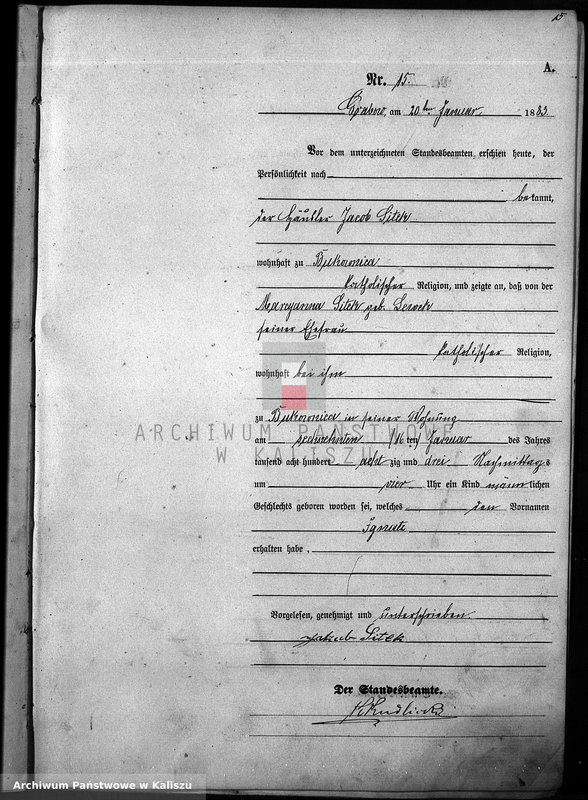 15
A.
Nr. 15.
Grabow, am 20ten Januar 1883.
Vor dem unterzeichneten Standesbeamten erschien heute, der
Persönlichkeit nach
bekannt,
der Häusler Jacob Sitek
wohnhaft zu Bukownica
katholischer Religion, und zeigte an, daß von der
Maryanna Sitek geb.
seiner Ehefrau
katholischer Religion,
wohnhaft bei ihm
zu Bukownica in seiner Wohnung
am sechzehnten (16ten) Januar des Jahres
tausend acht hundert acht zig und drei Nachmittags
um vier Uhr ein Kind männlichen
Geschlechts geboren worden sei, welches den Vornamen
erhalten habe.
Vorgelesen, genehmigt und unterschrieben.
Jakob Sitek
Der Standesbeamte.
ARCHIWUM PAŃSTWOWE
W KALISZU
Archiwum Państwowe w Kaliszu